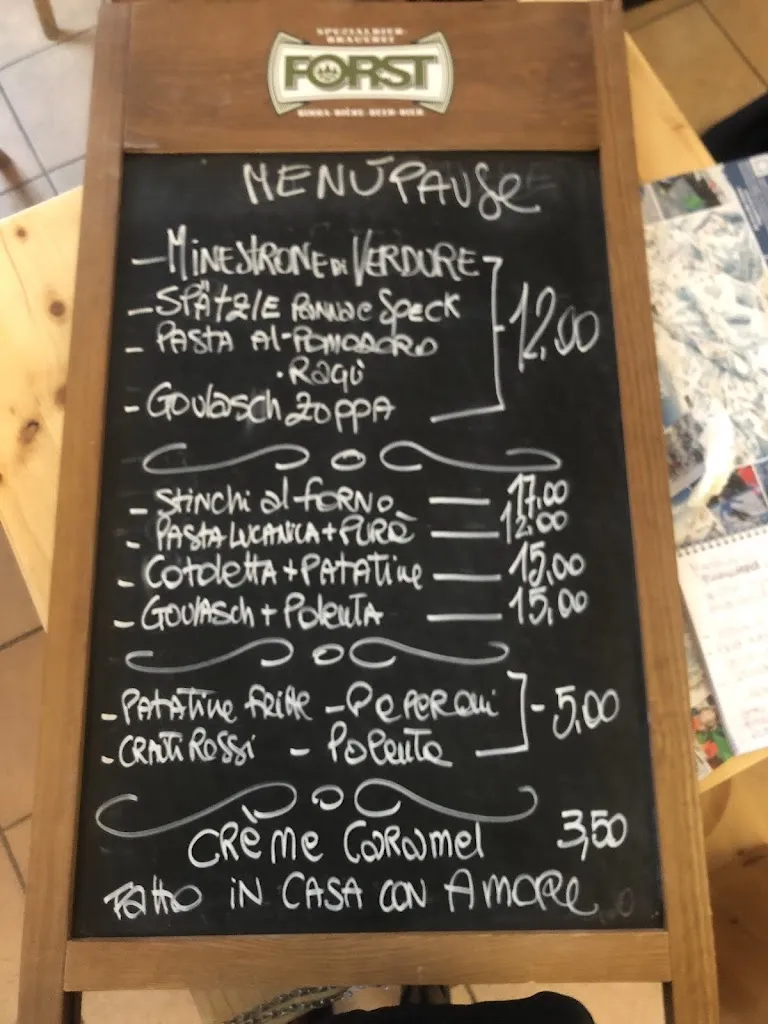 SPEZIALBIER-
BRAUEREI
FORST
BIRRA-BIÈRE-BEER-BIER
MENÙ PAUSE
- MINESTRONE DI VERDURE
- SPÄTZLE PANNA e SPECK 12,00
- PASTA AL POMODORO
. RAGÙ
- GOULASCH ZOPPA
- STINCHI al FORNO 17,00
- PASTA LUCANICA + PURÈ 12,00
- COTOLETTA + PATATINE 15,00
- GOULASCH + POLENTA 15,00
- PATATINE FRITTE - PEPERONI - 5,00
- CRAUTI ROSSI - POLENTA
CRÈME CARAMEL 3,50
FATTO IN CASA CON AMORE